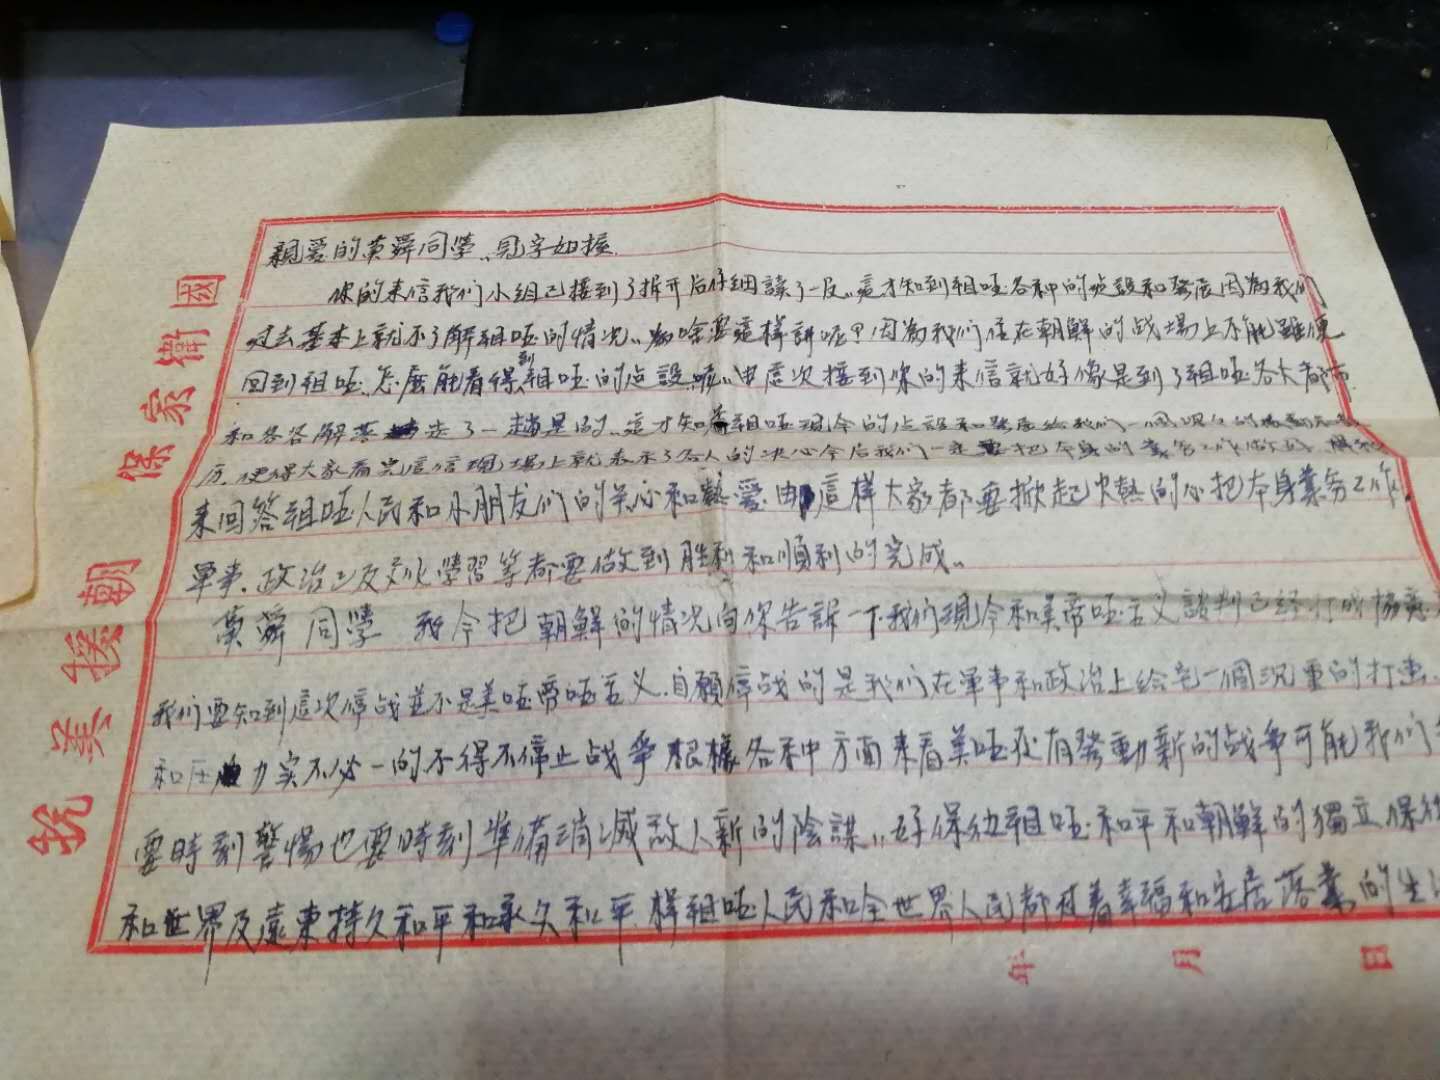 親爱的黄舜同學、見字如握.
你的来信我们小组己接到了拆开后仔细讀了一反,,這才知到祖国各种的建設和發展因為我们
过去基本上就不了解祖国的情况,,為啥要這样講呢?因為我们住在朝鮮的战場上不能雖便
回到祖国.怎麼能看得到祖国的建設呢,,由這次接到你的来信就好像是到了祖国各大都市
和各各解走了一趟是的,,這才知道祖国現今的建設和發展給我们一個
大家看完這信現場上就表示了各人的决心今后我们一定要把本身的業务工作做好
来回答祖国人民和小朋友们的关心和熱爱.由這样大家都要掀起火熱的心把本身業务工作.
軍事.政治以及文化學習等都要做到胜利和順利的完成,,
黄舜同學 我今把朝鮮的情况向你告訴一下.我们現今和美帝国主义談判已經打成協意
我们要知到這次停战並不是美国帝国主义.自願停战的是我们在軍事和政治上給它一個沉重的打击.
和压力实不必一的不得不停止战爭根據各种方面来看美国还有發動新的战爭可能我们
要時刻警惕也要時刻準備消滅敌人新的陰謀,,好保衛祖国和平和朝鮮的獨立保衛
和世界及遠東持久和平和永久和平.样祖国人民和全世界人民都过着幸福和安居落業的生
抗美援朝 保家衛國
年 月 日